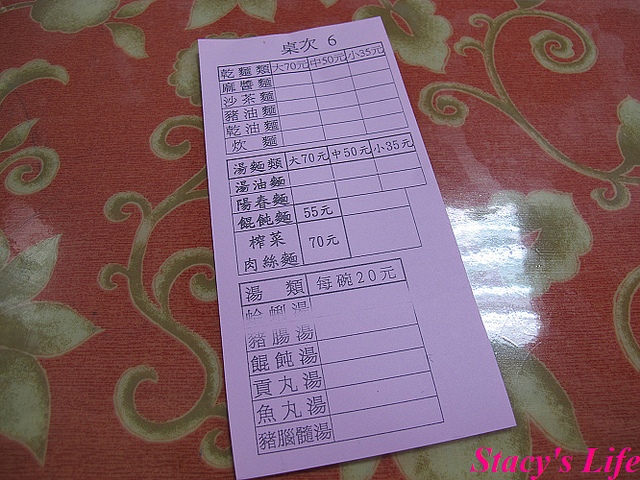 桌次 6
乾麵類 大70元 中50元 小35元
麻醬麵
沙茶麵
豬油麵
乾油麵
炊 麵
湯麵類 大70元 中50元 小35元
湯油麵
陽春麵
餛飩麵 55元
榨菜
肉絲麵 70元
湯 類 每碗20元
蛤蜊湯
豬腸湯
餛飩湯
貢丸湯
魚丸湯
豬腦髓湯
Stacy's Life